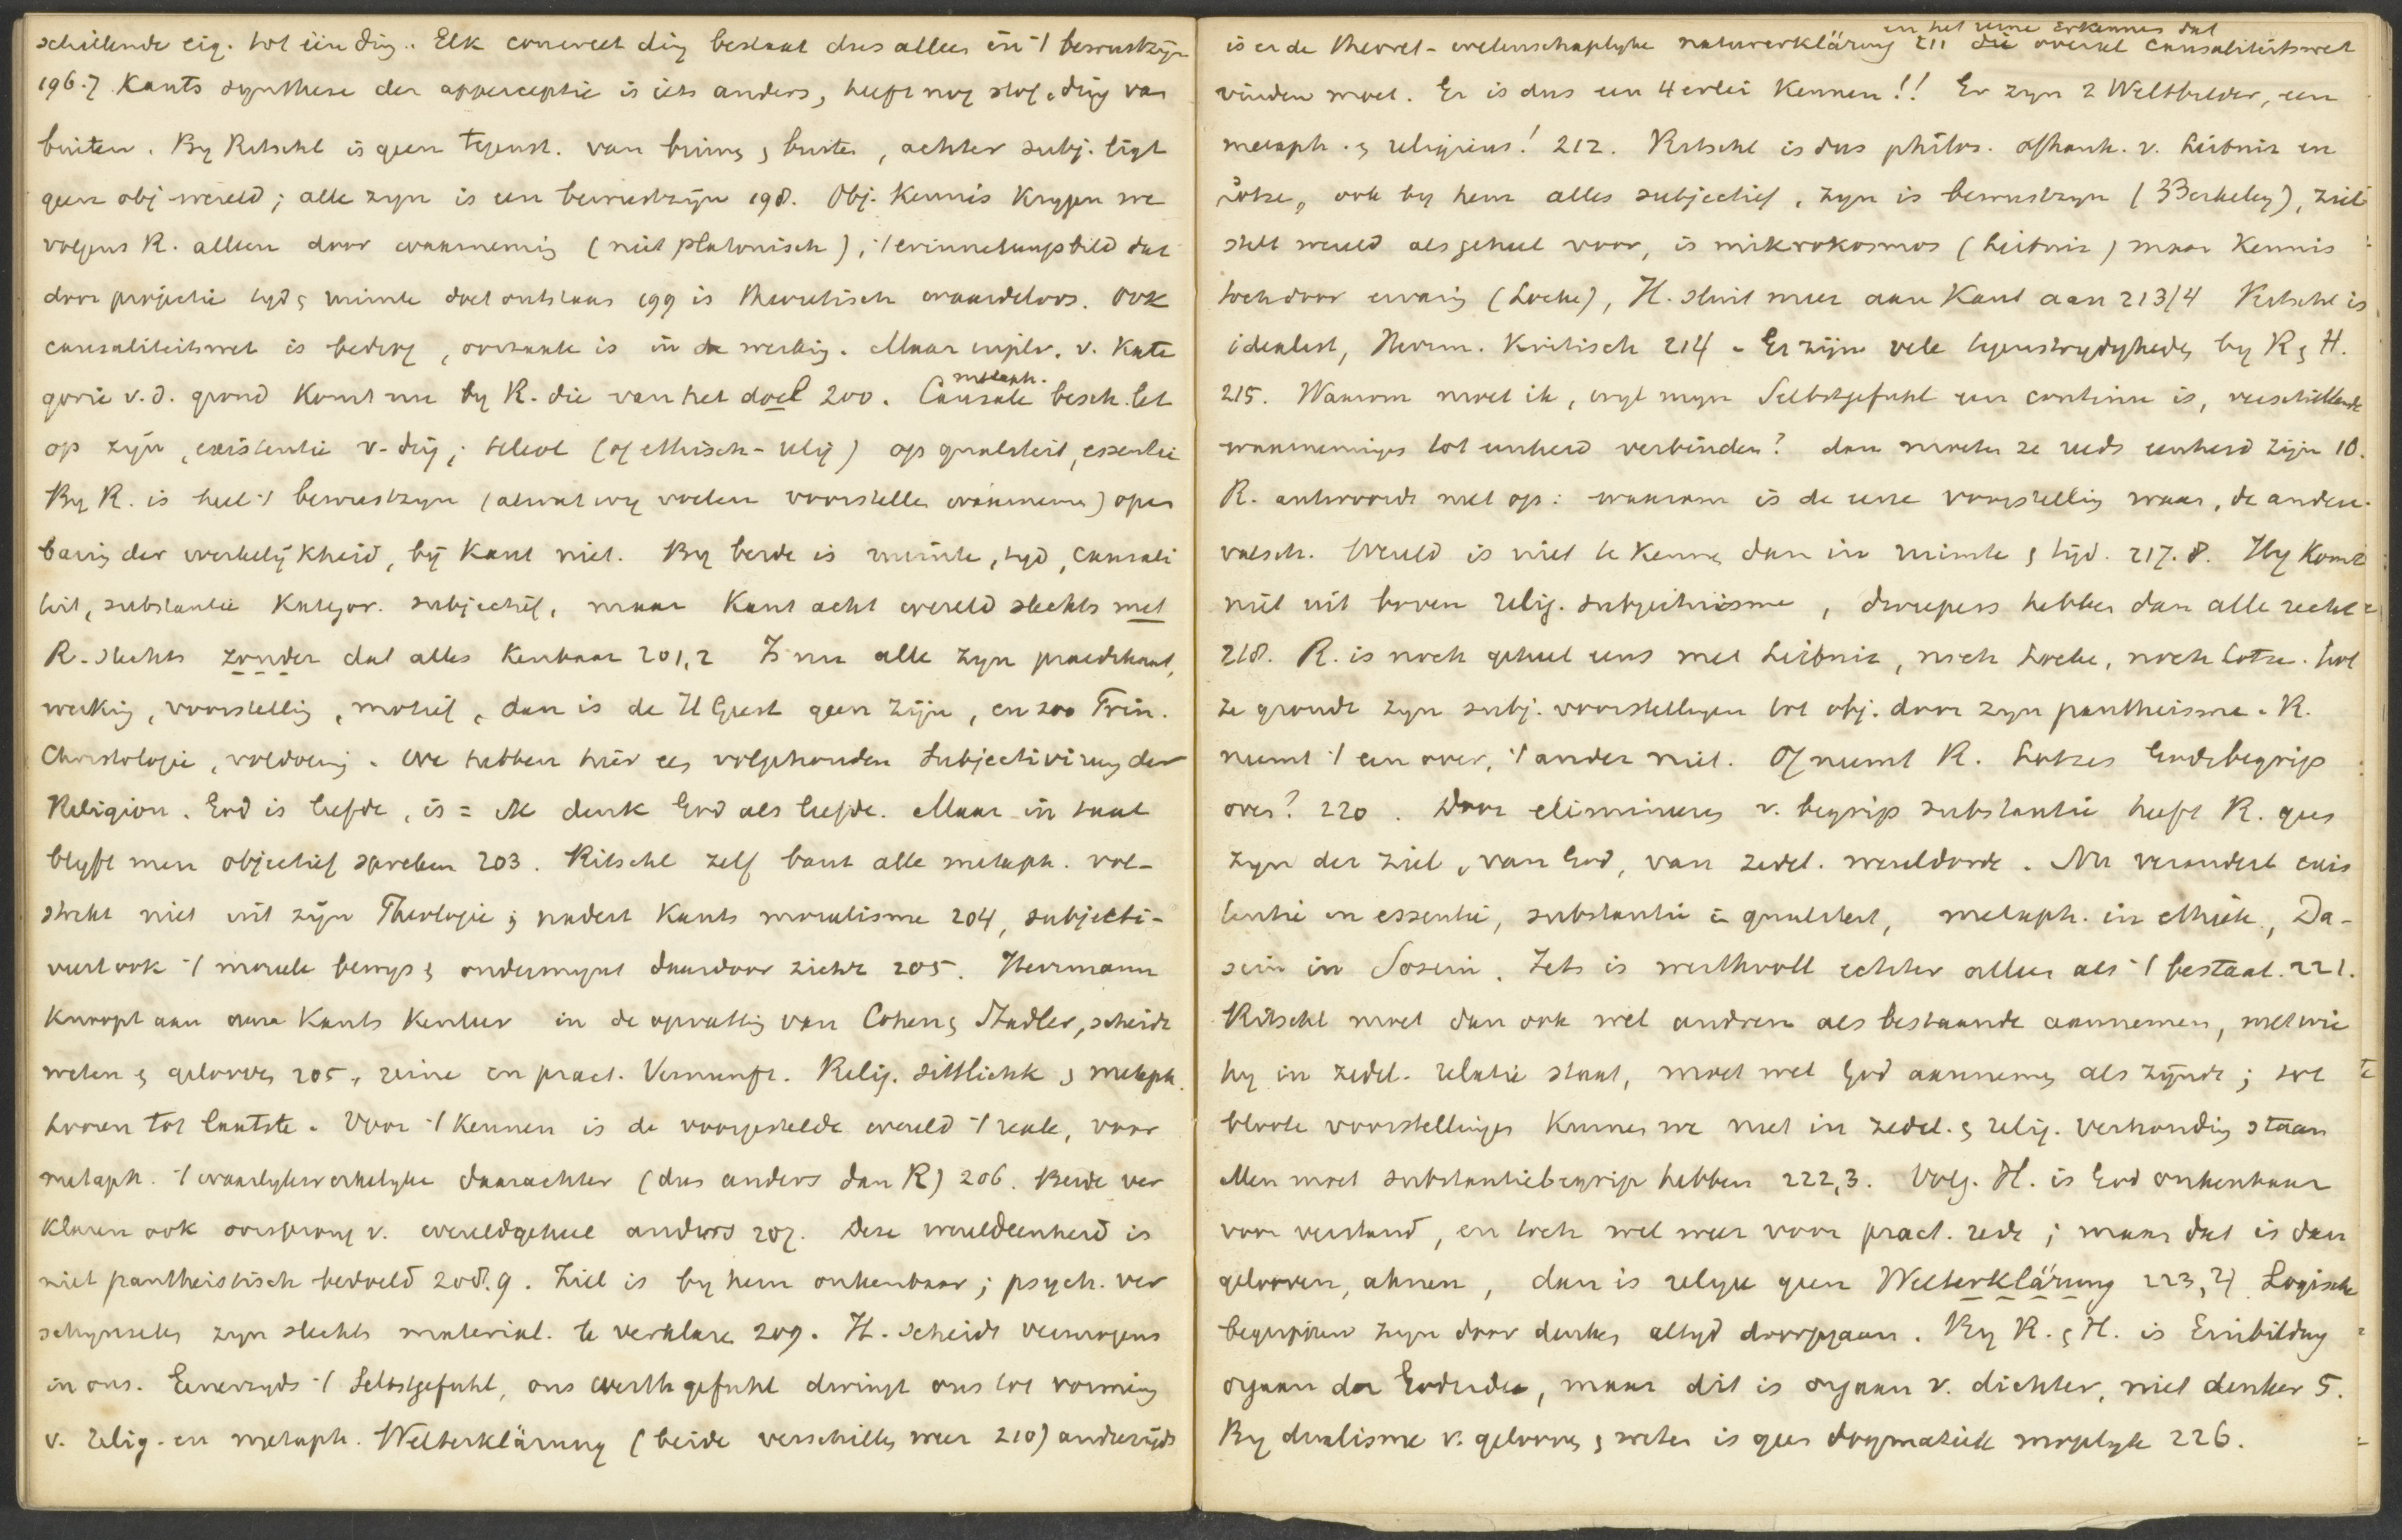 schillende eig. tot één ding. Elk concreet ding bestaat dus alleen in 't bewustzijn
196.7 Kants synthese der apperceptie is iets anders, heeft nog stof, ding van
buiten. By Ritschl is geen tegenst. van binnen & buiten, achter subj. ligt
geen obj wereld; alle zyn is een bewustzijn 198. Obj. Kennis Krygen we
volgens R. alleen door waarneming (niet platonisch), 't erinnerungsbild dat
door projectie tyd & ruimte doet ontstaan 199 is theoretisch waardeloos. Ook
causaliteitswet is bedrog, oorzaak is in de werking. Maar in plts. v. Kate
gorie v.d. grond Komt nu by R. die van het doel 200. Causale metaph. besch. let
op zijn, existentie v. ding; teleol (of ethisch-relig) op qualiteit, essentie
By R. is heel 't bewustzyn (al wat wy voelen voorstellen waarnemen) open
baring der werkelijkheid, bij Kant niet. By beide is ruimte, tyd, causali
teit, substantie Kategor. subjectief, maar Kant acht wereld slechts met
R. slechts zonder dat alles Kenbaar 201,2 Is nu alle zyn praedikaat,
werking, voorstelling, motief, dan is de H Geest geen zijn, en zoo Trin.
Christologie, voldoening. We hebben hier een volgehouden Subjectivirung der
Religion. God is liefde, is = ik denk God als liefde. Maar in taal
blyft men objectief spreken 203. Ritschl zelf bant alle metaph. vol-
strekt niet uit zijn Theologie; nadert Kants moralisme 204, subjecti-
veert ook 't morele bewys & ondermynt daardoor zichz 205. Herrmann
Knoopt aan Kants Kenleer in de opvatting van Cohen & Stadler, scheidt
weten & gelooven 205, reine en pract. Vernunft. Relig. sittlichk & metaph.
hooren tot laatste. Voor 't Kennen is de voorgestelde wereld 't reale, voor
metaph. 't waarlykwerkelyke daarachter (dus anders dan R) 206. Beide ver
klaren ook oorsprong v. wereldgeheel anders 207. Deze wereldeenheid is
niet pantheistisch bedoeld 208.9. Ziel is by hem onkenbaar; psych. ver
schynselen zyn slechts material. te verklaren 209. H. scheidt vermogens
in ons. Eenerzyds 't Selbstgefuhl, ons werthgefuhl dwingt ons tot vorming
v. relig. en metaph. Welterklärung (beide verschillen weer 210) anderzijds
is er de theoret-wetenschaplyke naturerklärung en het reine Erkennen dat 211 die overal causaliteitswet
vinden moet. Er is dus een 4 erlei Kennen!! Er zyn 2 Weltbilder, een
metaph. & religieus! 212. Ritschl is dus philos. afhank. v. Leibniz en
Lotze, ook by hem alles subjectief, zyn is bewustzyn (Berkeley), ziel
stelt wereld als geheel voor, is mikrokosmos (Leibniz) maar Kennis
toch door ervaring (Locke), H. sluit meer aan Kant aan 213/4 Ritschl is
idealist, Herrm. Kritisch 214. Er zijn vele tegenstrydigheden by R & H.
215. Waarom moet ik, wyl myn Selbstgefuhl een continu is, verschillende
waarnemingen tot eenheid verbinden? dan moeten ze reeds eenheid zijn 16.
R. antwoordt niet op: waarom is de eene voorstelling waar, de andere
valsch. Wereld is niet te Kennen dan in ruimte & tijd. 217.8. Hy Komt
niet uit boven relig. subjectivisme, dweepers hebben dan alle recht
218. R. is noch geheel eens met Leibniz, noch Locke, noch Lotze. Lot
ze grondt zyn subj. voorstellingen tot obj. door zyn pantheisme. R.
neemt 't een over, 't ander niet. Of neemt R. Lotzes Godsbegrip
over? 220. Door elimineren v. begrip substantie heeft R. geen
zyn der ziel, van God, van zedel. wereldorde. Nu verandert exis
tentie in essentie, substantie in qualiteit, metaph. in ethiek, Da-
sein in Sosein. Iets is werthvoll echter alleen als 't bestaat. 221.
Ritschl moet dan ook wel andren als bestaande aannemen, met wie
hy in zedel. relatie staat, moet wel God aannemen als zijnde; tot
bloote voorstellingen Kunnen we niet in zedel. & relig. verhouding staan
Men moet substantiebegrip hebben 222,3. Volg. H. is God onkenbaar
voor verstand, en toch wel weer voor pract. rede; maar dat is dan
gelooven, ahnen, dan is religie geen Welterklärung 223,4 Logisch
begrypen zyn door denken altyd doorgaan. By R. & H. is Einbildung
orgaan der Godsidee, maar dit is orgaan v. dichter, niet denker 5.
By dualisme v. gelooven & weten is geen dogmatiek mogelyk 226.